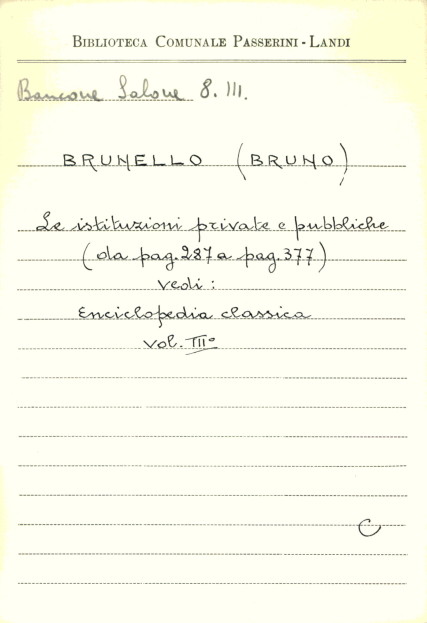 BIBLIOTECA COMUNALE PASSERINI - LANDI
Bancone Salone 8. III.
BRUNELLO (BRUNO)
Le istituzioni private e pubbliche
(da pag. 287 a pag. 377)
vedi :
Enciclopedia classica
vol. III°
C